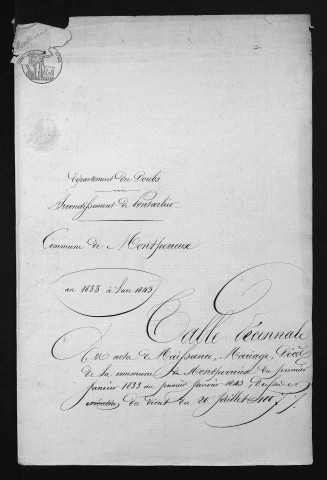 Département du Doubs
Arrondissement de Pontarlier
Commune de Montperreux
an 1833 à l'an 1843
Table Décennale
Des actes de Naissance, Mariage, Décès
de la commune de Montperreux du premier
janvier 1833 au premier janvier 1843, Dressée en
exécution du décret du 20 Juillet 1807